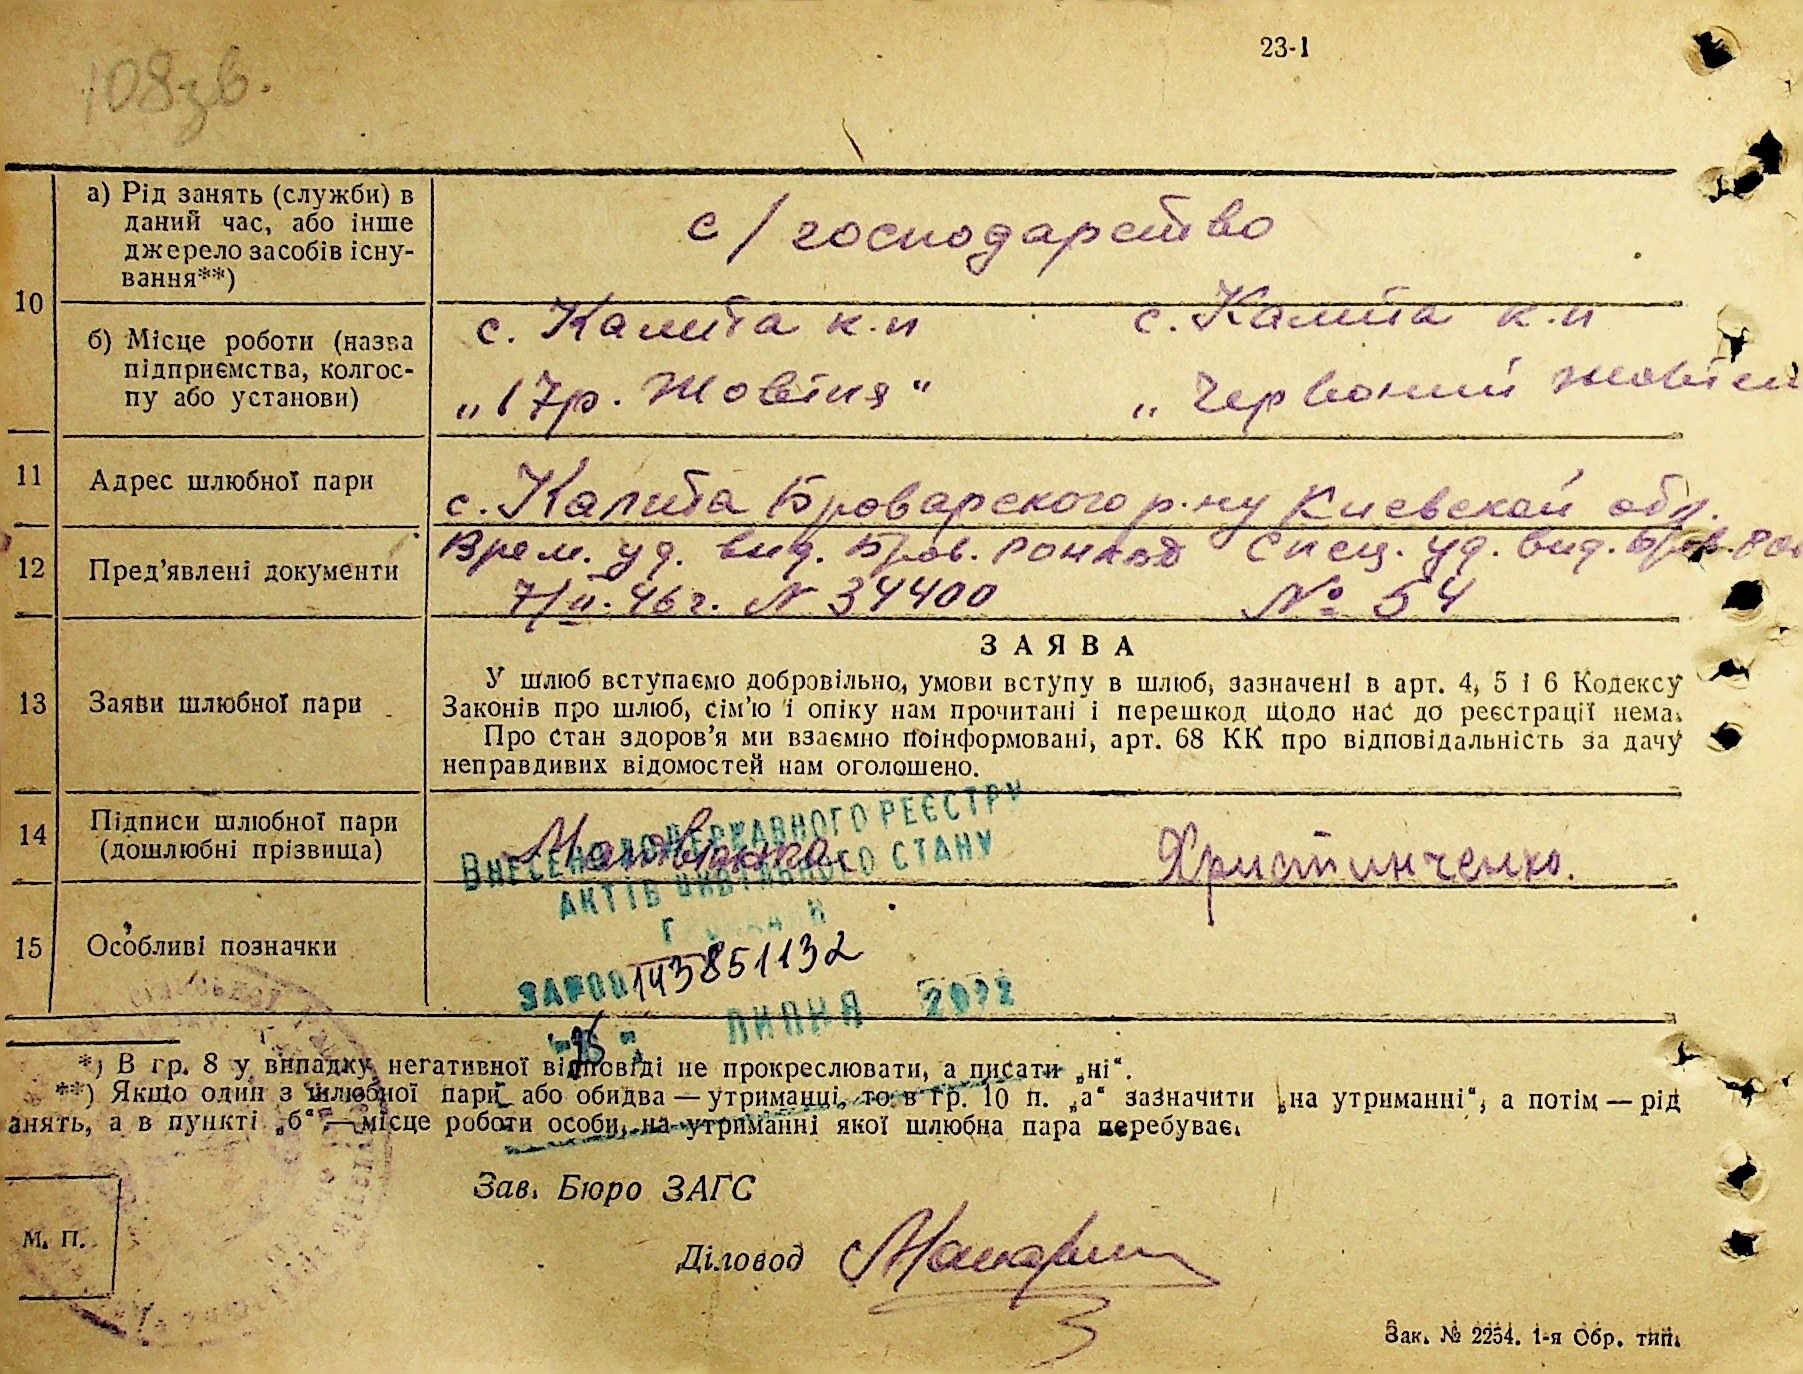 23-1
108зв.
10
а) Рід занять (служби) в
даний час, або інше
джерело засобів існу-
вання**)
с/господарство
б) Місце роботи (назва
підприємства, колгос-
пу або установи)
с. Калита к.п
„17р. Жовтня"
с. Калита к.п
„Червоний жовтен
11
Адрес шлюбної пари
с. Калита Броварского р-ну Киевской обл.
12
Пред'явлені документи
Врем. уд. вид. Бров. РОНКВД
7/II-46г. N 34400
Спец. уд. вид. Бров.
№ 54
13
Заяви шлюбної пари
ЗАЯВА
У шлюб вступаємо добровільно, умови вступу в шлюб, зазначені в арт. 4, 5 і 6 Кодексу
Законів про шлюб, сім'ю і опіку нам прочитані і перешкод щодо нас до реєстрації нема.
Про стан здоров'я ми взаємно поінформовані, арт. 68 КК про відповідальність за дачу
неправдивих відомостей нам оголошено.
14
Підписи шлюбної пари
(дошлюбні прізвища)
Христинченко.
ВНЕСЕНО ДО ДЕРЖАВНОГО РЕЄСТРУ
АКТІВ ЦИВІЛЬНОГО СТАНУ
ГРОМАДЯН
15
Особливі позначки
143851132
ЛИПНЯ
*) В гр. 8 у випадку негативної відповіді не прокреслювати, а писати „ні“.
**) Якщо один з шлюбної пари або обидва — утриманці, то в гр. 10 п. „а“ зазначити „на утриманні“, а потім — рід
анять, а в пункті „б“ — місце роботи особи, на утриманні якої шлюбна пара перебуває.
Зав. Бюро ЗАГС
М. П.
Діловод
Зак. № 2254. 1-я Обр. тип.